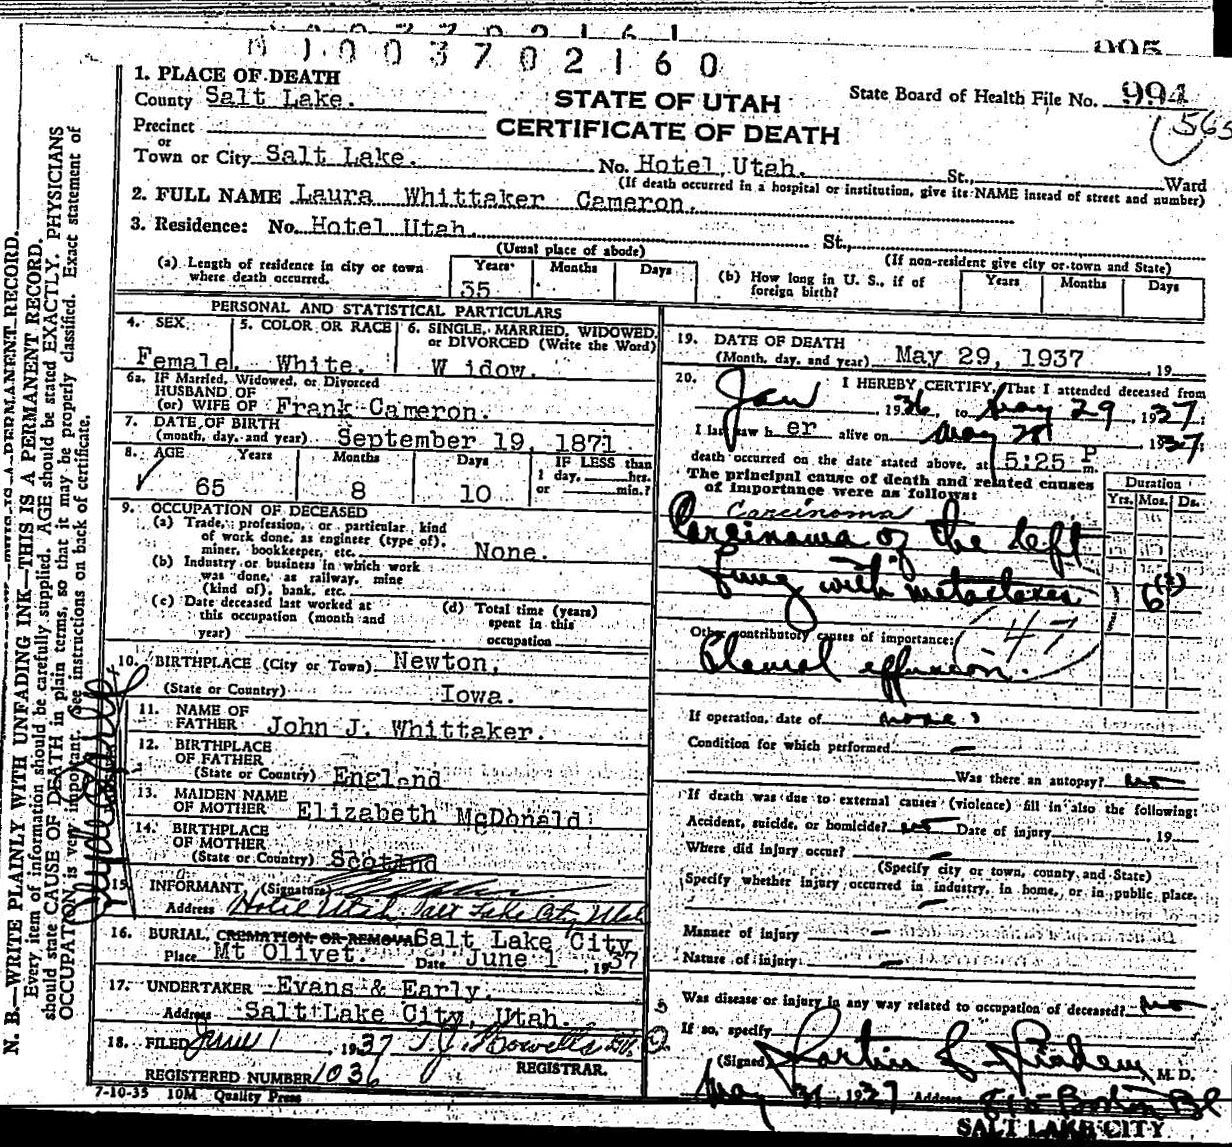 N1003702160
995
1. PLACE OF DEATH
County Salt Lake.
STATE OF UTAH
CERTIFICATE OF DEATH
State Board of Health File No. 994
565
Precinct
or
Town or City Salt Lake. No. Hotel Utah. St., Ward
(If death occurred in a hospital or institution, give its NAME insead of street and number)
2. FULL NAME Laura Whittaker Cameron.
3. Residence: No. Hotel Utah. St.,
(Usual place of abode) (If non-resident give city or town and State)
(a) Length of residence in city or town where death occurred. Years 35 Months Days
(b) How long in U. S., if of foreign birth? Years Months Days
PERSONAL AND STATISTICAL PARTICULARS
4. SEX Female.
5. COLOR OR RACE White.
6. SINGLE, MARRIED, WIDOWED, or DIVORCED (Write the Word) W idow.
6a. IF Married, Widowed, or Divorced
HUSBAND OF
(or) WIFE OF Frank Cameron.
7. DATE OF BIRTH
(month, day, and year) September 19, 1871
8. AGE Years 65 Months 8 Days 10 IF LESS than 1 day, hrs. or min.?
9. OCCUPATION OF DECEASED
(a) Trade, profession, or particular kind
of work done, as engineer (type of),
miner, bookkeeper, etc. None.
(b) Industry or business in which work
was done, as railway, mine
(kind of), bank, etc.
(c) Date deceased last worked at
this occupation (month and
year)
(d) Total time (years)
spent in this
occupation
10. BIRTHPLACE (City or Town) Newton,
(State or Country) Iowa.
11. NAME OF
FATHER John J. Whittaker.
12. BIRTHPLACE
OF FATHER
(State or Country) England
13. MAIDEN NAME
OF MOTHER Elizabeth McDonald
14. BIRTHPLACE
OF MOTHER
(State or Country) Scotland
15. INFORMANT, (Signature)
Address Hotel Utah. Salt Lake City Utah
16. BURIAL, CREMATION OR REMOVAL Salt Lake City
Place Mt Olivet. Date June 1 1937
17. UNDERTAKER Evans & Early.
Address Salt Lake City, Utah.
18. FILED June 1, 1937
REGISTRAR.
REGISTERED NUMBER 1036
7-10-35 10M Quality Press
19. DATE OF DEATH
(Month, day, and year) May 29, 1937 19
20. I HEREBY CERTIFY, That I attended deceased from
Jan 1936, to May 29 1937;
I last saw h er alive on May 28 1937
death occurred on the date stated above, at 5:25 P m.
The principal cause of death and related causes
of importance were as follows:
Duration
Yrs. Mos. Ds.
Carcinoma
Carcinoma of the left
lung with metastases 6(?)
Other contributory causes of importance: 47
Pleural effusion.
If operation, date of none
Condition for which performed –
Was there an autopsy? no
If death was due to external causes (violence) fill in also the following:
Accident, suicide, or homicide? no Date of injury 19
Where did injury occur? –
(Specify city or town, county and State)
Specify whether injury occurred in industry, in home, or in public place.
–
Manner of injury –
Nature of injury –
Was disease or injury in any way related to occupation of deceased? no
If so, specify
(Signed) M. D.
May 31, 1937 Address 815 Boston Bl
SALT LAKE CITY
N. B.—WRITE PLAINLY WITH UNFADING INK—THIS IS A PERMANENT RECORD.
Every item of information should be carefully supplied. AGE should be stated EXACTLY. PHYSICIANS
should state CAUSE OF DEATH in plain terms, so that it may be properly classified. Exact statement of
OCCUPATON is very important. See instructions on back of certificate.